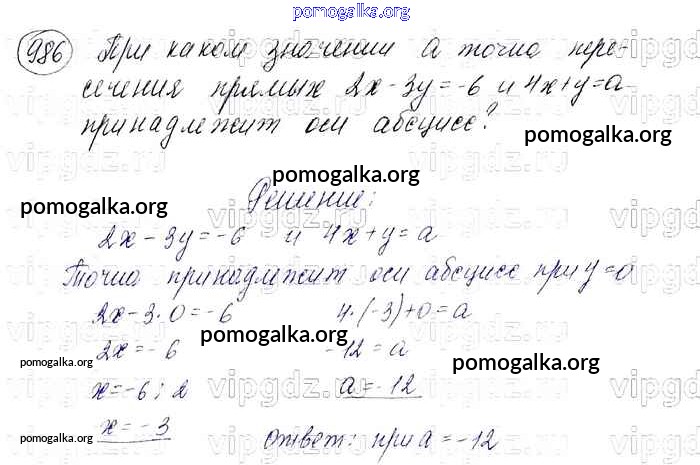 pomogalka.org
986 При каком значении а точка пере-
сечения прямых 2x-3y=-6 и 4x+y=a
принадлежит оси абсцисс?
pomogalka.org
Решение:
pomogalka.org
pomogalka.org
2x-3y=-6 и 4x+y=a
Точка принадлежит оси абсцисс при y=0
2x-3·0=-6 4·(-3)+0=a
pomogalka.org
2x=-6 -12=a
pomogalka.org pomogalka.org
x=-6:2 a=-12
x=-3
pomogalka.org ответ: при a=-12